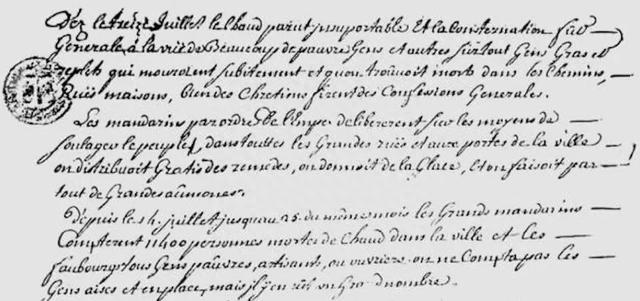 Déz le treize Juillet le chaud parut insuportable Et la Consternation fut
Generale, à la vuë de Beaucoup de pauvres Gens et autres surtout Gens Gras et
replets qui mouroient subitement et quon trouuoit morts dans les Chemins,
Ruës maisons, bien des Chretiens firent des Confessions Generales.
Les mandarins par ordre de l'Emper délibererent sur les moyens de
soulager le peuple, dans toutes les Grandes ruës et aux portes de la ville
on distribuoit Gratis des remedes, on donnoit de la Glace, et on faisoit par
tout de Grandes aûmones.
Depuis le 14. juillet jusquau 25. du même mois les Grands mandarins
Compterent 11400 personnes mortes de Chaud dans la ville et les
faubourgs tous Gens paûvres, artisants, ou ouvriers on ne Compta pas les
Gens aises et en place, mais il y en eût un Gros nombre.